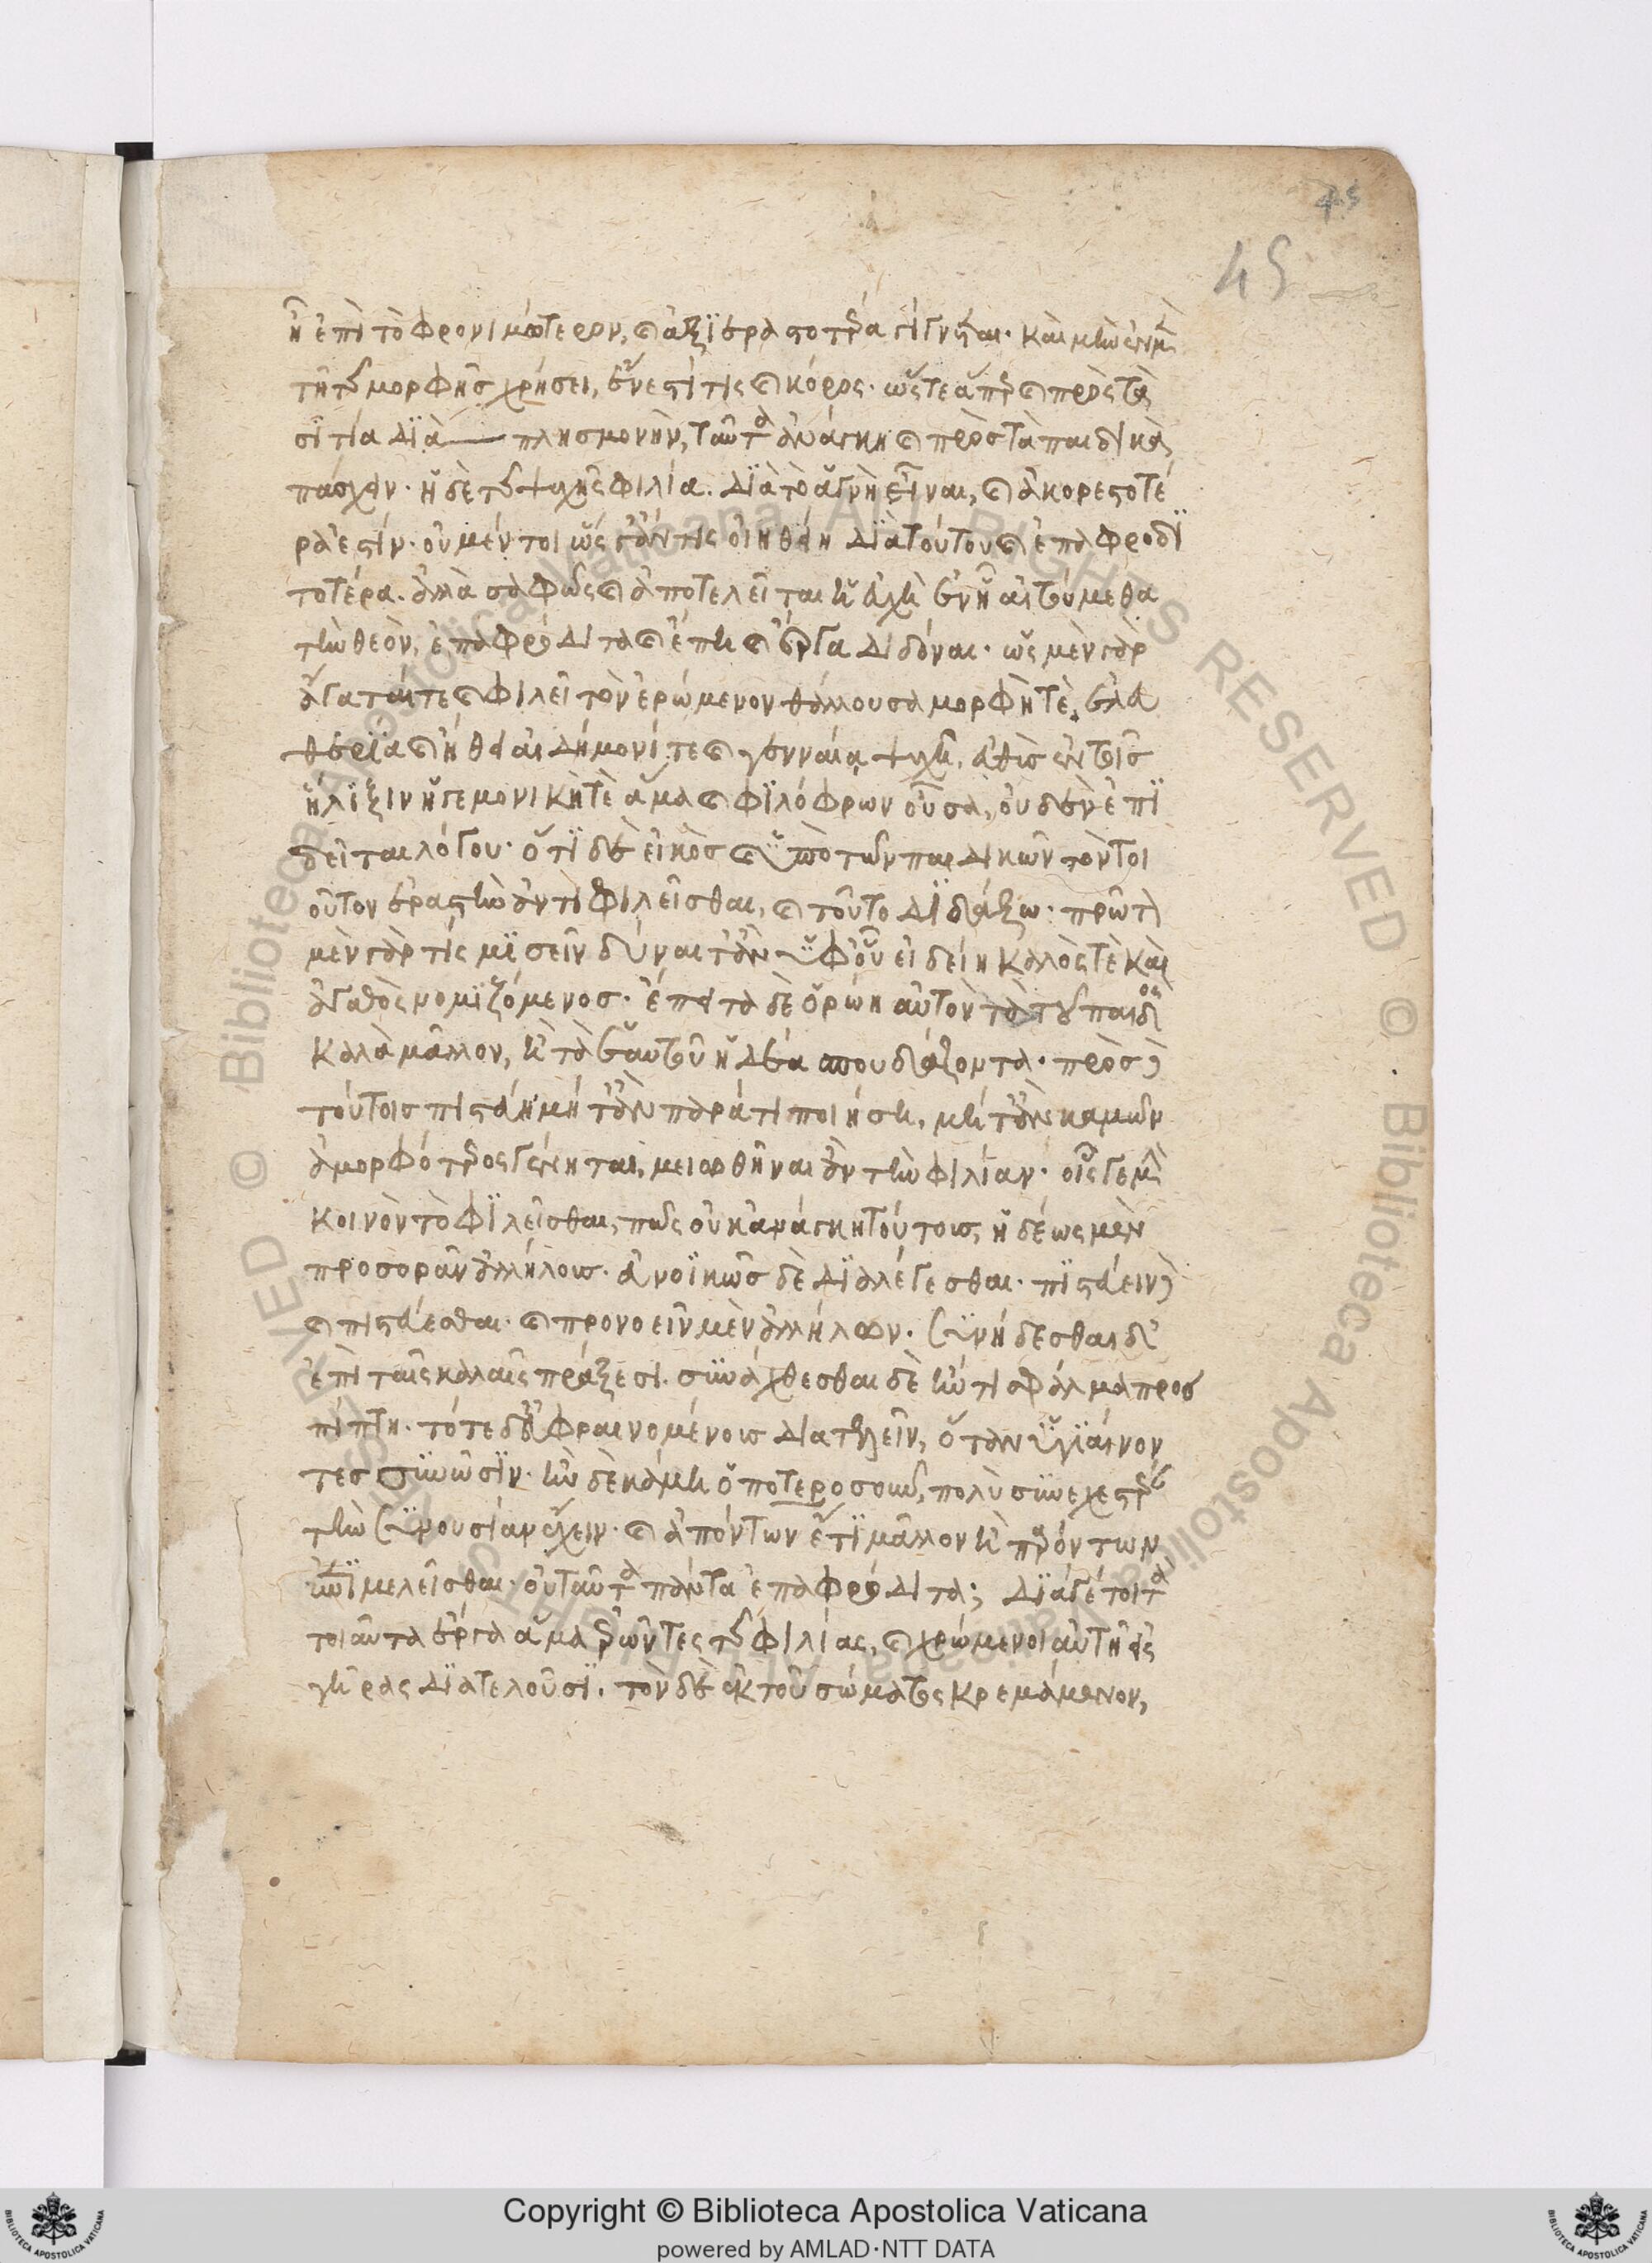 45
45
ἢ ἐπὶ τὸ φρονιμώτερον, καὶ ἀξιεραστοτέρα γίγνεται. καὶ μὴν ἐν μὲν
τῇ τῆς μορφῆς χρήσει, ἔνεστί τις καὶ κόρος. ὥστε ἅπερ καὶ πρὸς τὰ
σιτία διὰ πλησμονήν, ταῦτα ἀνάγκη καὶ πρὸς τὰ παιδικὰ
πάσχειν. ἡ δὲ τῆς ψυχῆς φιλία. διὰ τὸ ἁγνὴ εἶναι, καὶ ἀκορεστοτέ
ρα ἐστίν. οὐ μέντοι ὥς γ' ἄν τις οἰηθείη διὰ τοῦτο καὶ ἐπαφροδι
τοτέρα. ἀλλὰ σαφῶς καὶ ἀποτελεῖται ἡ εὐχὴ ἐν ᾗ αἰτούμεθα
τὴν θεὸν, ἐπαφρόδιτα καὶ ἔπη καὶ ἔργα διδόναι. ὡς μὲν γὰρ
ἄγαταί τε καὶ φιλεῖ τὸν ἐρώμενον θάλλουσα μορφῇ τὲ, ἐλευ
θερία καὶ ἤθει αἰδήμονί τε καὶ γενναίῳ ψυχὴ, εὐθὺς ἐν τοῖς
ἥλιξιν ἡγεμονική τὲ ἅμα καὶ φιλόφρων οὖσα, οὐδὲν ἐπι
δεῖται λόγου. ὅτι δὲ εἰκὸς καὶ ὑπὸ τῶν παιδικῶν τὸν τοι
οῦτον ἐραστὴν ἀντιφιλεῖσθαι, καὶ τοῦτο διδάξω. πρῶτον
μὲν γὰρ τίς μισεῖν δύναιτ' ἂν ὑφ' οὗ εἰδείη καλός τὲ καὶ
ἀγαθὸς νομιζόμενος. ἔπειτα δὲ ὁρῴη αὐτὸν τὰ τοῦ παιδὸς
καλὰ μᾶλλον, ἢ τὰ ἑαυτοῦ ἡδέα σπουδάζοντα. πρὸς δὲ
τούτοις πιστεύῃ μήτ' ἂν παρά τι ποιήσῃ, μήτ' ἂν καμὼν
ἀμορφότερος γένηται, μειωθῆναι ἂν τὴν φιλίαν. οἷς γε μὴν
κοινὸν τὸ φιλεῖσθαι, πῶς οὐκ ἀνάγκη τούτοις, ἡδέως μὲν
προσορᾶν ἀλλήλους. εὐνοϊκῶς δὲ διαλέγεσθαι. πιστεύειν δὲ
καὶ πιστεύεσθαι. καὶ προνοεῖν μὲν ἀλλήλων. συνήδεσθαι δ'
ἐπὶ ταῖς καλαῖς πράξεσι. συνάχθεσθαι δὲ ἤν τι σφάλμα προσ
πίπτῃ. τότε δ' εὐφραινομένους διατελεῖν, ὅταν ὑγιαίνον
τες συνῶσιν. ἢν δὲ κάμῃ ὁποτεροσοῦν, πολὺ συνεχεστέραν
τὴν συνουσίαν ἔχειν. καὶ ἀπόντων ἔτι μᾶλλον ἢ παρόντων
ἐπιμελεῖσθαι. οὐ ταῦτα πάντα ἐπαφρόδιτα; διά γέ τοι τὰ
τοιαῦτα ἔργα ἅμα ἐρῶντες τῆς φιλίας, καὶ χρώμενοι αὐτῇ εἰς
γῆρας διατελοῦσι. τὸν δὲ ἐκ τοῦ σώματος κρεμάμενον,
Copyright © Biblioteca Apostolica Vaticana
powered by AMLAD·NTT DATA